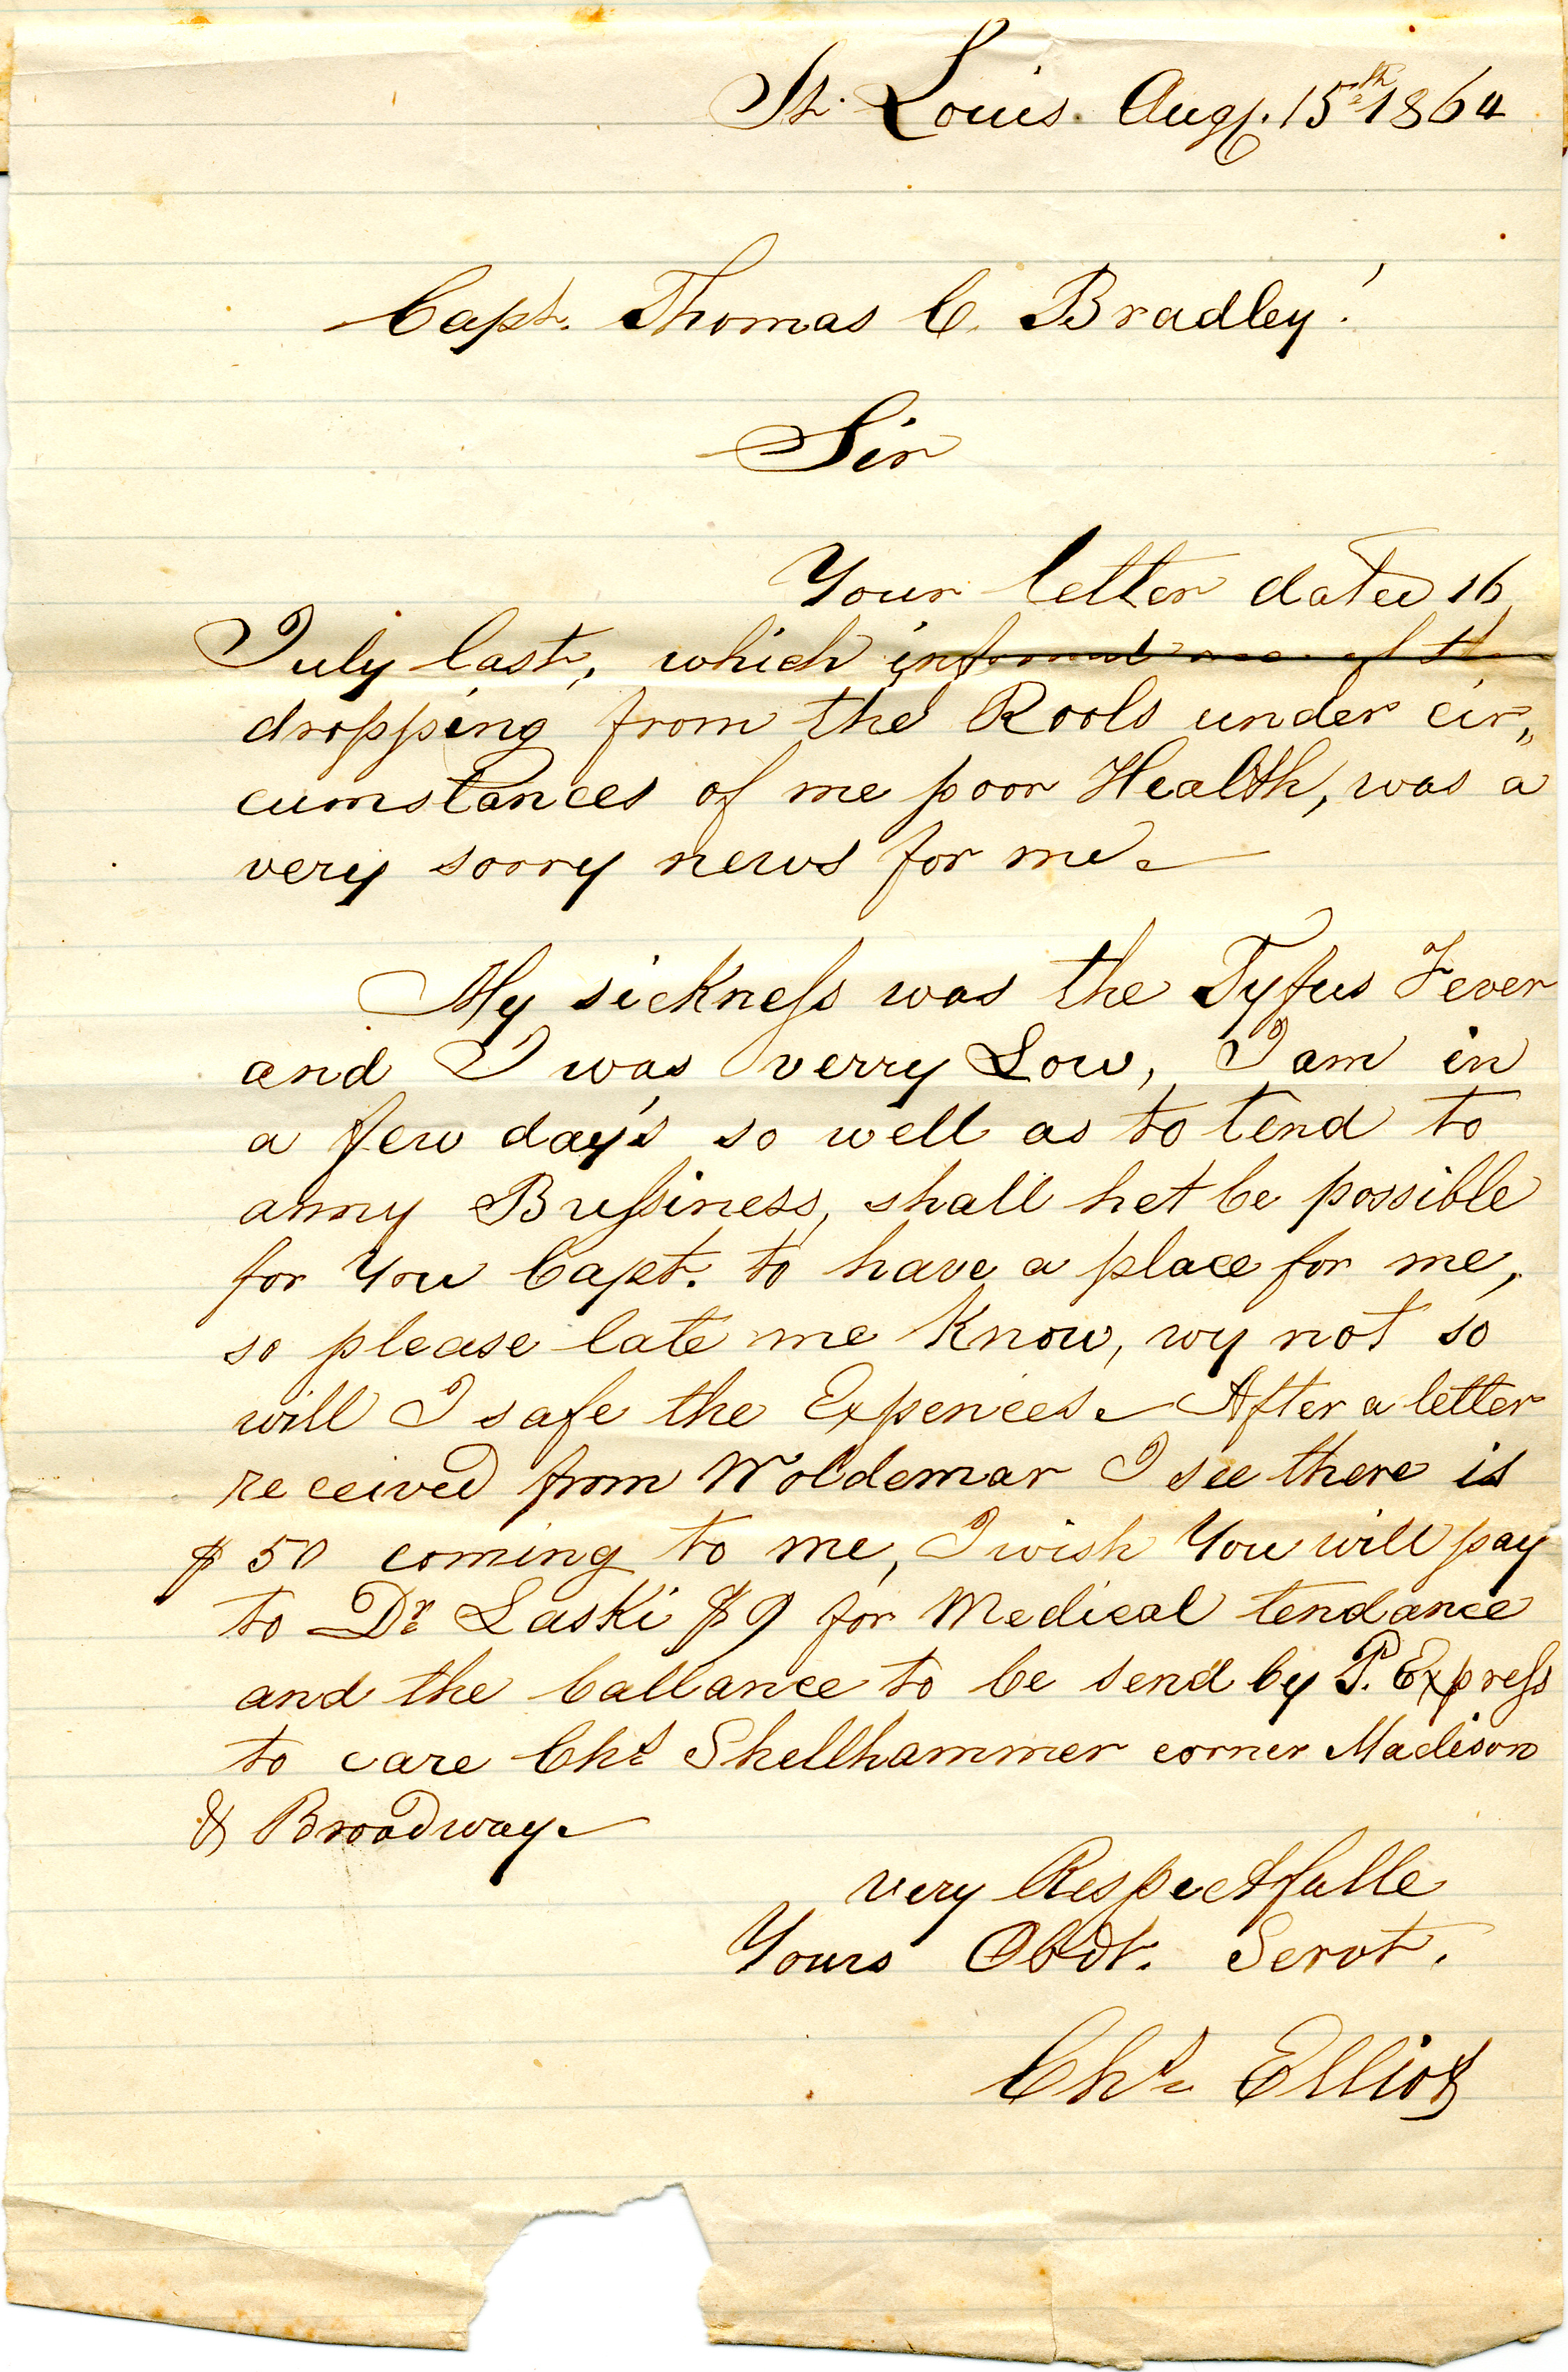 St. Louis. Augt. 15th 1864
Capt. Thomas C. Bradley!
Sir
Your letter dated 16
July last, which informed me of the
dropping from the Rools under cir„
cumstances of me poor Health, was a
very sorry news for me.
My sickness was the Tyfus Fever
and I was verry Low, I am in
a few day's so well as to tend to
anny Bussiness, shall het be possible
for You Capt. to have a place for me,
so please late me Know, wy not so
will I safe the Expences. After a letter
received from Woldemar I see there is
$ 50 coming to me, I wish You will pay
to Dr. Laski $ 9 for Medical tendance
and the ballance to be send by P. Express
to care Chs. Shellhammer corner Madison
& Broadway.
very Respectfulle
Yours Obdt. Servt.
Chs. Elliot